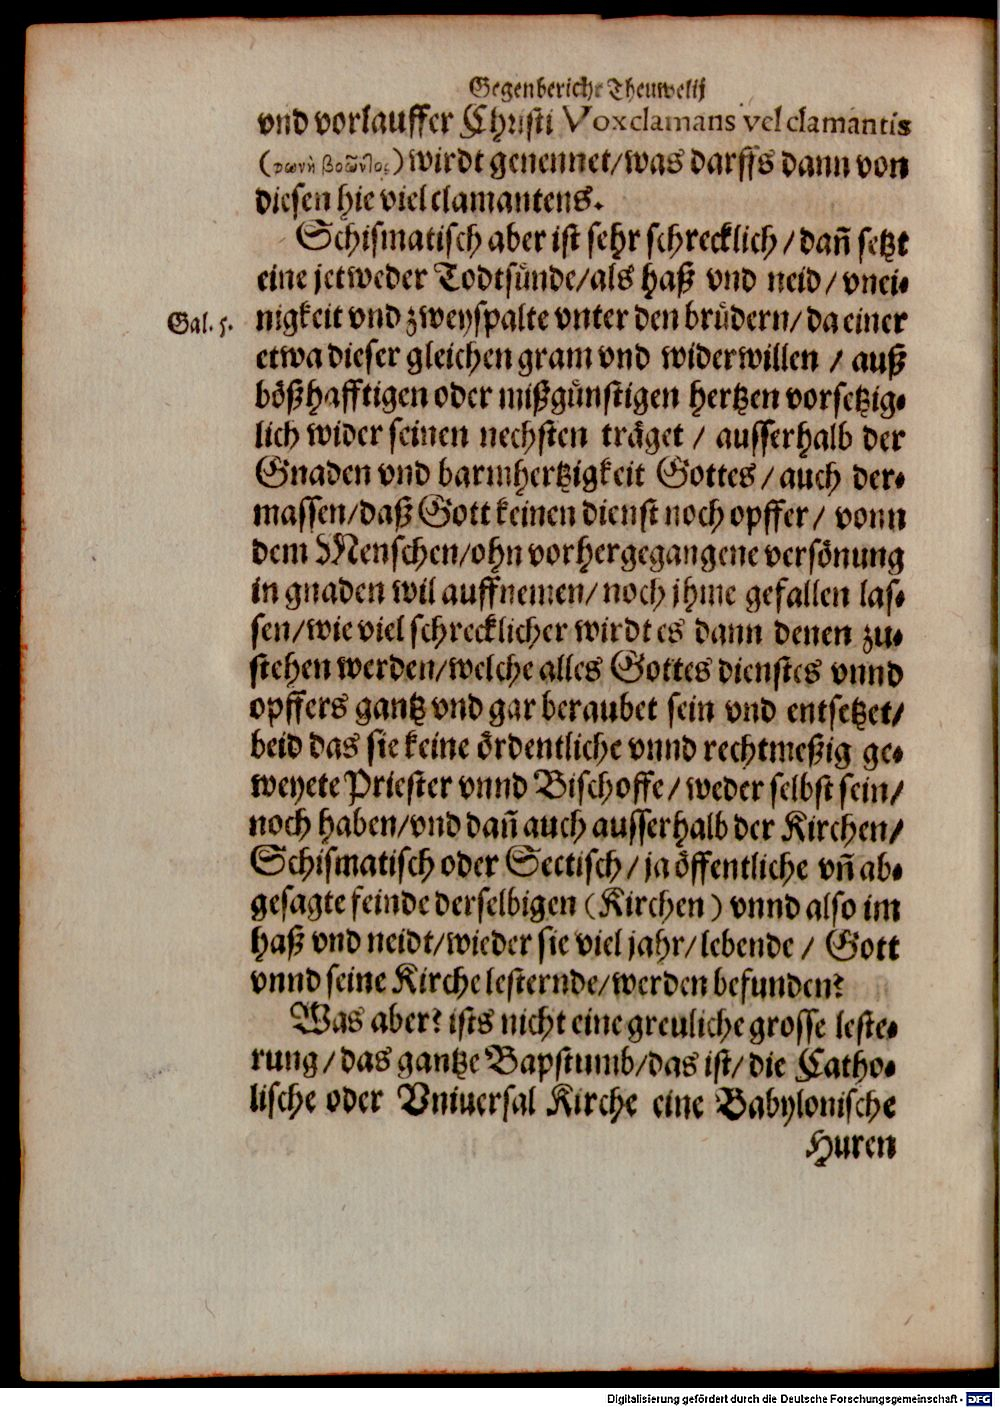 Gegenbericht Theuwelij
vnd vorlauffer Christi Vox clamans vel clamantis
(φωνὴ βοῶντος) wirdt genennet/was darffs dann von
diesen hie viel clamantens.
Schismatisch aber ist sehr schrecklich/dañ setzt
eine jetweder Todtsünde/als haß vnd neid/vnei-
Gal. 5. nigkeit vnd zweyspalte vnter den brüdern/da einer
etwa dieser gleichen gram vnd widerwillen / auß
bößhafftigen oder mißgünstigen hertzen vorsetzig-
lich wider seinen nechsten träget / ausserhalb der
Gnaden vnd barmhertzigkeit Gottes/auch der-
massen/daß Gott keinen dienst noch opffer/ vonn
dem Menschen/ohn vorhergegangene versönung
in gnaden wil auffnemen/noch jhme gefallen las-
sen/wie viel schrecklicher wirdt es dann denen zu-
stehen werden/welche alles Gottes dienstes vnnd
opffers gantz vnd gar beraubet sein vnd entsetzet/
beid das sie keine ördentliche vnnd rechtmeßig ge-
weyete Priester vnnd Bischoffe/weder selbst sein/
noch haben/vnd dañ auch ausserhalb der Kirchen/
Schismatisch oder Sectisch/ja öffentliche vñ ab-
gesagte feinde derselbigen (Kirchen) vnnd also im
haß vnd neidt/wieder sie viel jahr/lebende / Gott
vnnd seine Kirche lesternde/werden befunden?
Was aber? ists nicht eine greuliche grosse leste-
rung/das gantze Bapstumb/das ist/die Catho-
lische oder Vniuersal Kirche eine Babylonische
Huren
Digitalisierung gefördert durch die Deutsche Forschungsgemeinschaft - DFG